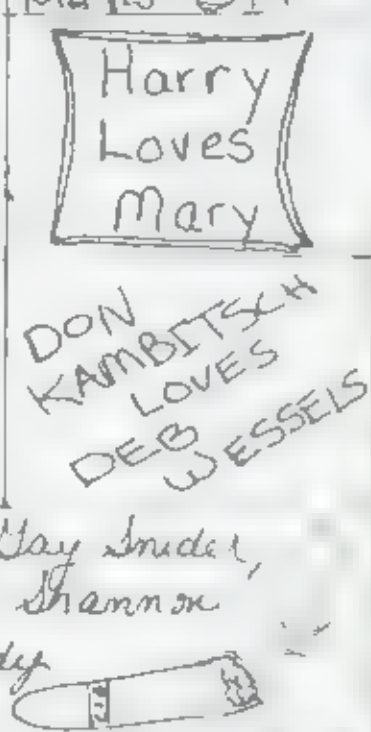 Harry
Loves
Mary
DON
KAMBITSCH
LOVES
DEB
WESSELS
Snider,
Shannon